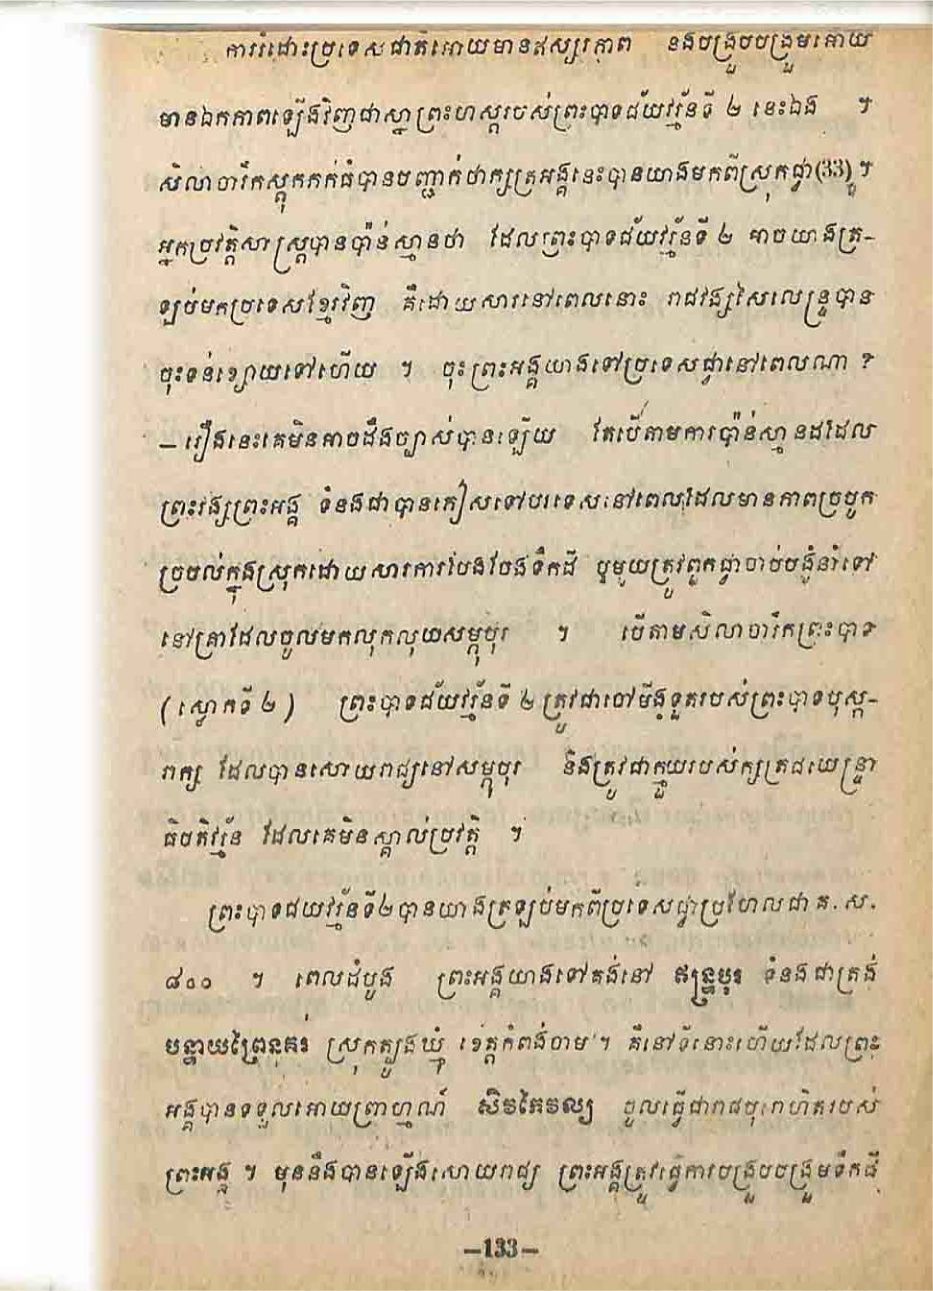 ការរំដោះប្រទេសជាតិអោយមានឥស្សរភាព នងបង្រួបបង្រួមអោយ
មានឯកភាពឡើងវិញជាស្នាព្រះហស្តរបស់ព្រះបាទជ័យវរ្ម័នទី ២ នេះឯង ។
សិលាចារឹកស្តុកកក់ធំបានបញ្ជាក់ថាក្សត្រអង្គនេះបានយាងមកពីស្រុកជ្វា(33) ។
អ្នកប្រវត្តិសាស្ត្របានប៉ាន់ស្មានថា ដែលព្រះបាទជ័យវរ្ម័នទី ២ អាចយាងត្រ-
ឡប់មកប្រទេសខ្មែរវិញ គឺដោយសារនៅពេលនោះ រាជវង្សសៃលេន្ទ្របាន
ចុះទន់ខ្សោយទៅហើយ ។ ចុះព្រះអង្គយាងទៅប្រទេសជ្វានៅពេលណា ?
— រឿងនេះគេមិនអាចដឹងច្បាស់បានឡើយ តែបើតាមការប៉ាន់ស្មានដដែល
ព្រះវង្សព្រះអង្គ ទំនងជាបានភៀសទៅបរទេសនៅពេលដែលមានភាពច្របូក
ច្របល់ក្នុងស្រុកដោយសារការបែងចែងទឹកដី ឬមួយត្រូវពួកជ្វាចាប់បង្ខំនាំទៅ
នៅគ្រាដែលចូលមកលុកលុយសម្ភុបុរ ។ បើតាមសិលាចារឹកព្រះបាទ
(ស្លោកទី ២) ព្រះបាទជ័យវរ្ម័នទី ២ ត្រូវជាចៅមីងទួតរបស់ព្រះបាទបុស្ក-
រាក្ស ដែលបានសោយរាជ្យនៅសម្ភុបុរ និងត្រូវជាក្មួយរបស់ក្សត្រជយេន្ទ្រា
ធិបតិវរ្ម័ន ដែលគេមិនស្គាល់ប្រវត្តិ ។
ព្រះបាទជយវរ្ម័នទី២បានយាងត្រឡប់មកពីប្រទេសជ្វាប្រហែលជា គ.ស.
៨០០ ។ ពេលដំបូង ព្រះអង្គយាងទៅគង់នៅ ឥន្ទ្របុរ ទំនងជាត្រង់
បន្ទាយព្រៃនគរ ស្រុកត្បូងឃ្មុំ ខេត្តកំពង់ចាម ។ គឺនៅទីនោះហើយដែលព្រះ
អង្គបានទទួលអោយព្រាហ្មណ៍ សិវកៃវល្យ ចូលធ្វើជារាជបុរោហិតរបស់
ព្រះអង្គ ។ មុននឹងបានឡើងសោយរាជ្យ ព្រះអង្គត្រូវធ្វើការបង្រួបបង្រួមទឹកដី
—133—